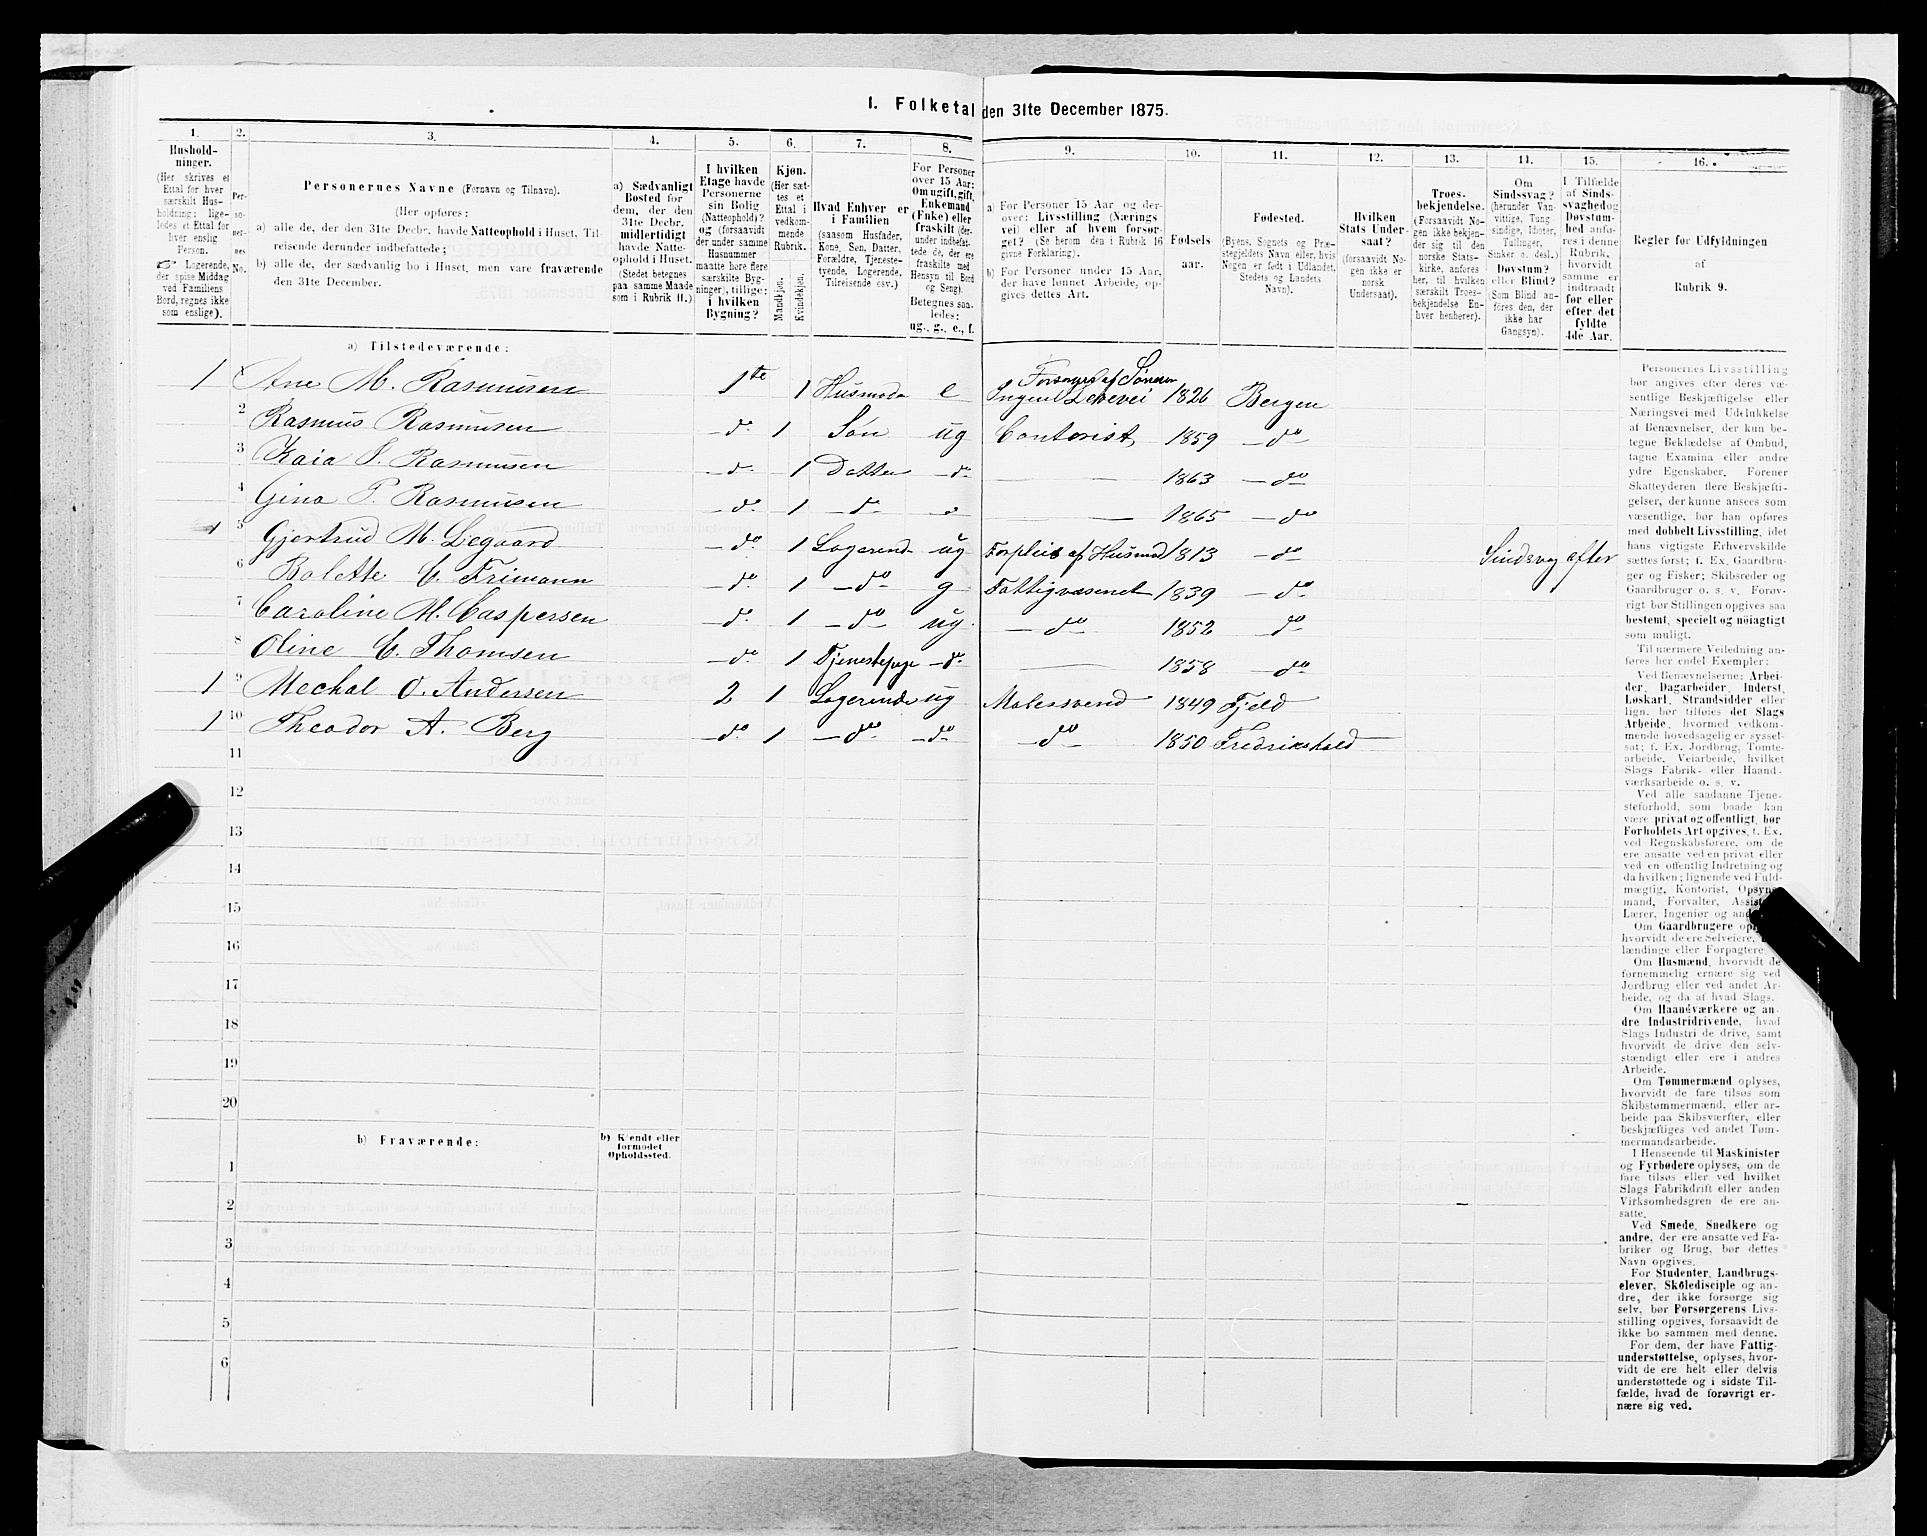 I. Folketal den 31te December 1875.
1.
Hushold-
ninger.
(Her skrives et
Ettal for hver
særskilt Hus-
holdning; lige-
ledes et Ettal for
hver enslig
Person.
Logerende,
der spise Middag
ved Familiens
Bord, regnes ikke
som enslige).
2.
Per-
so-
ner-
nes
No.
3.
Personernes Navne (Fornavn og Tilnavn).
(Her opføres:
a) alle de, der den 31te Decbr. havde Natteophold i Huset, Til-
reisende derunder indbefattede;
b) alle de, der sædvanlig bo i Huset, men vare fraværende
den 31te December.
4.
a) Sædvanligt
Bosted for
dem, der den
31te Decbr.
midlertidigt
havde Natte-
ophold i Huset.
(Stedet betegnes
paa samme Maade
som i Rubrik 11.)
5.
I hvilken
Etage havde
Personerne
sin Bolig
(Natteophold)?
og (forsaavidt
der under samme
Husnummer
maatte høre flere
særskilte Byg-
ninger), tillige:
i hvilken
Bygning?
6.
Kjøn.
(Her sæt-
tes et
Ettal i
vedkom-
mende
Rubrik.
Mandkjøn.
Kvindekjøn.
7.
Hvad Enhver er
i Familien
(saasom Husfader,
Kone, Søn, Datter,
Forældre, Tjeneste-
tyende, Logerende,
Tilreisende osv.)
8.
For Personer
over 15 Aar:
Om ugift, gift,
Enkemand
(Enke) eller
fraskilt (der-
under indbefat-
tede de, der ere
fraskilte med
Hensyn til Bord
og Seng).
Betegnes saa-
ledes:
ug., g., e., f.
9.
a) For Personer 15 Aar og der-
over: Livsstilling (Nærings
vei) eller af hvem forsør-
get? (Se herom den i Rubrik 16
givne Forklaring).
b) For Personer under 15 Aar,
der have lønnet Arbeide, op-
gives dettes Art.
10.
Fødsels
aar.
11.
Fødested.
(Byens, Sognets og Præ-
stegjeldets Navn eller, hvis
Nogen er født i Udlandet,
Stedets og Landets
Navn).
12.
Hvilken
Stats Under-
saat?
(forsaavidt No-
gen ikke er
norsk
Undersaat).
13.
Troes-
bekjendelse.
(Forsaavidt No-
gen ikke bekjen-
der sig til den
norske Stats-
kirke, anføres
her, til hvilken
særskilt Troes-
bekjendelse En-
hver henhører).
14.
Om
Sindssvag?
(herunder Van-
vittige, Tung
sindige, Idioter,
Tullinger,
Sinker o. desl.)
Døvstum?
eller Blind?
(Som Blind an-
føres den, der
ikke har
Gangsyn).
15.
I Tilfælde
af Sinds-
svaghed og
Døvstum-
hed anfø-
res i denne
Rubrik,
hvorvidt
samme er
indtraadt
før eller
efter det
fyldte
4de Aar.
16.
Regler for Udfyldningen
af
Rubrik 9.
a) Tilstedeværende:
1 Ane M. Rasmusen 1te 1 Husmoder e Forsørges af Sønnen Ingen Levevei 1826 Bergen
2 Rasmus Rasmusen do 1 Søn ug Contorist 1859 do
3 Kaia S. Rasmusen do 1 Datter do 1863 do
4 Gina P. Rasmusen do 1 do 1865 do
1 5 Gjertrud M. Legaard do 1 Logerend ug Forpleies af Husmod 1813 do Sindsvag efter
6 Bolette C. Frimann do 1 do g Fattigvæsenet 1839 do
7 Caroline M. Caspersen do 1 do ug. do 1852 do
8 Oline C. Thomsen do 1 Tjenestepige do 1858 do
1 9 Mechal O. Andersen 2 1 Logerende ug Malersvend 1849 Fjeld
1 10 Theodor A. Berg do 1 do do do 1850 Fredrikshald
11
12
13
14
15
16
17
18
19
20
b) Fraværende:
b) Kjendt eller
formodet
Opholdssted.
1
2
3
4
5
6
Personernes Livsstilling
bør angives efter deres væ-
sentlige Beskjæftigelse eller
Næringsvei med Udelukkelse
af Benævnelser, der kun be-
tegne Beklædelse af Ombud,
tagne Examina eller andre
ydre Egenskaber. Forener
Skatteyderen flere Beskjæfti-
gelser, der kunne ansees som
væsentlige, bør han opføres
med dobbelt Livsstilling, idet
hans vigtigste Erhvervskilde
sættes først; f. Ex. Gaardbru-
ger og Fisker; Skibsreder og
Gaardbruger o. s. v. Forøv-
rigt bør Stillingen opgives saa
bestemt, specielt og nöiagtigt
som muligt.
Til nærmere Veiledning an-
føres her endel Exempler:
Ved Benævnelserne: Arbei-
der, Dagarbeider, Inderst,
Løskarl, Strandsidder eller
lign. bør tilføies det Slags
Arbeide, hvormed vedkom-
mende hovedsagelig er syssel-
sat; f. Ex. Jordbrug, Tomte-
arbeide, Veiarbeide, hvilket
Slags Fabrik- eller Haand-
værksarbeide o. s. v.
Ved alle saadanne Tjene-
steforhold, som baade kan
være privat og offentligt, bør
Forholdets Art opgives, f. Ex.
ved Regnskabsførere, om de
ere ansatte ved en privat eller
ved en offentlig Indretning og
da hvilken; lignende ved Fuld-
mægtig, Kontorist, Opsyns-
mand, Forvalter, Assist
Lærer, Ingeniør og and
Om Gaardbrugere op
hvorvidt de ere Selveiere,
lændinge eller Forpagtere
Om Husmænd, hvorvidt de
fornemmelig ernære sig ved
Jordbrug eller ved andet Ar-
beide, og da af hvad Slags.
Om Haandværkere og an-
dre Industridrivende, hvad
Slags Industri de drive, samt
hvorvidt de drive den selv-
stændigt eller ere i andres
Arbeide.
Om Tømmermænd oplyses,
hvorvidt de fare tilsøs som
Skibstømmermænd, eller ar-
beide paa Skibsværfter, eller
beskjæftiges ved andet Tøm-
mermandsarbeide.
I Henseende til Maskinister
og Fyrbødere oplyses, om de
fare tilsøs eller ved hvilket
Slags Fabrikdrift eller anden
Virksomhedsgren de ere an-
satte.
Ved Smede, Snedkere og
andre, der ere ansatte ved Fa-
briker og Brug, bør dettes
Navn opgives.
For Studenter, Landbrugs-
elever, Skoledisciple og an-
dre, der ikke forsørge sig
selv, bør Forsørgerens Livs-
stilling opgives, forsaavidt de
ikke bo sammen med denne.
For dem, der have Fattig-
understøttelse, oplyses, hvor-
vidt de ere helt eller delvis
understøttede og i sidste Til-
fælde, hvad de forøvrigt er-
nære sig ved.